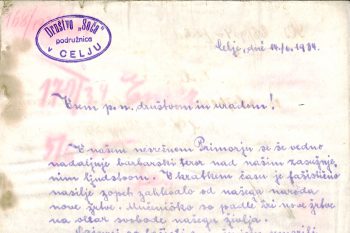 Društvo „Soča"
podružnica
v CELJU
Celje, dné 14./6. 1934.
Vsem p. n. društvom in uradom!
V našem nesrečnem Primorju se še vedno
nadaljuje barbarski teror nad našim zasužnje-
nim ljudstvom. V kratkem času je fašistično
nasilje zopet zahtevalo od našega naroda
nove žrtve. Mučeniško so padle tri nove žrtve
na oltar svobode našega življa.